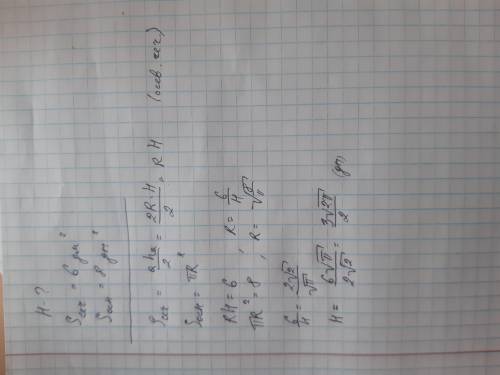 H-?
Sсеч = 6 дм²
Sосн = 8 дм²
Sсеч = aha/2 = 2RH/2 = RH (осев. сеч)
Sосн = πR²
RH = 6 , R = 6/H
πR² = 8 , R = √(8/π)
6/H = 2√2/√π
H = 6√π/2√2 = 3√2π/2 (дм)